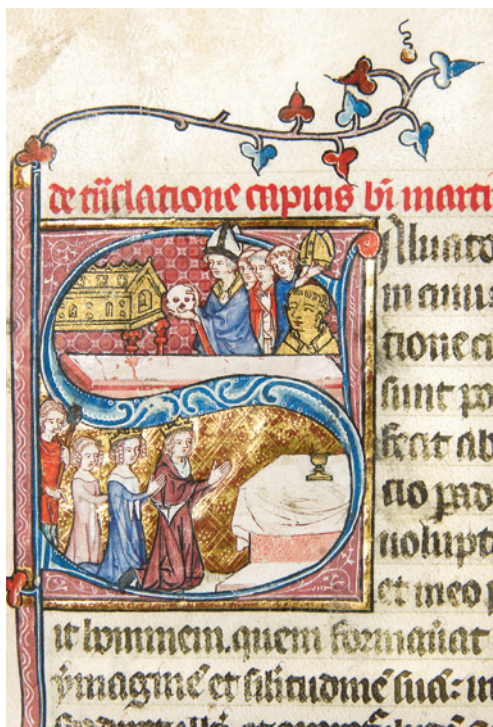 de tñslatione capitis bi̅ marti
Saluato
in cuiu
tione ci
sunt po
fecit ab
tio pad
uolupt
et meo p
ut hominem. quem formau̾at
ymagine̅ et si̅litudine̅ sua̅: in